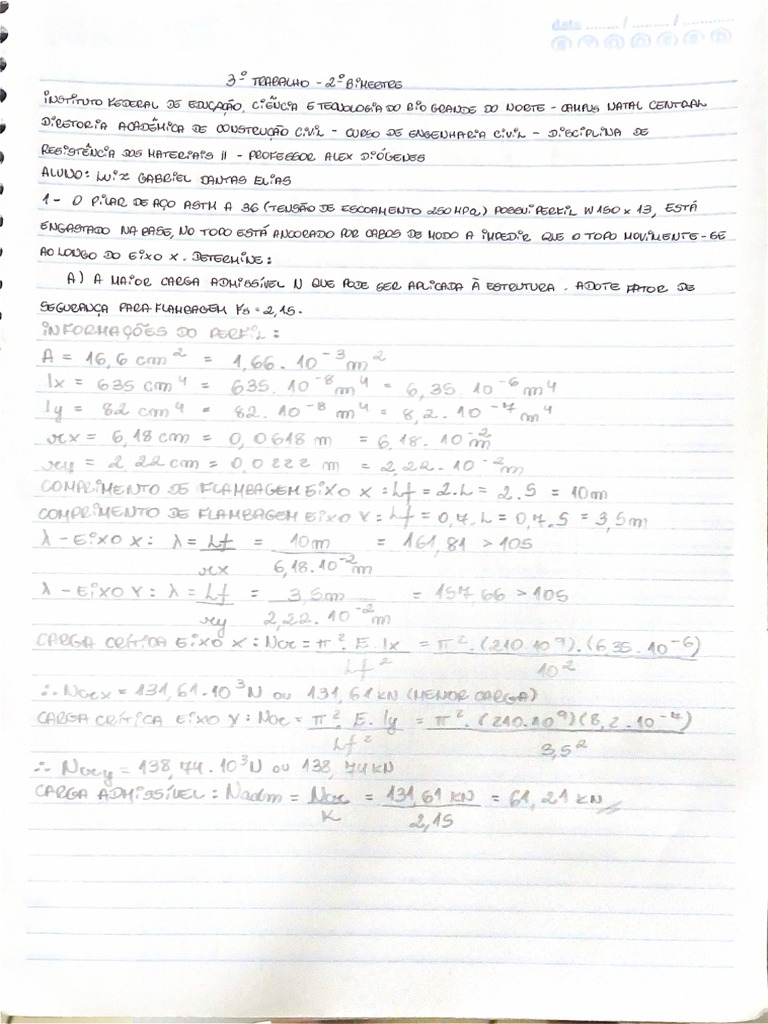 data ....... / ....... / ..........
3º TRABALHO - 2º BIMESTRE
INSTITUTO FEDERAL DE EDUCAÇÃO, CIÊNCIA E TECNOLOGIA DO RIO GRANDE DO NORTE - CAMPUS NATAL CENTRAL
DIRETORIA ACADÊMICA DE CONSTRUÇÃO CIVIL - CURSO DE ENGENHARIA CIVIL - DISCIPLINA DE
RESISTÊNCIA DOS MATERIAIS II - PROFESSOR ALEX DIÓGENES
ALUNO: LUIZ GABRIEL DANTAS ELIAS
1 - O PILAR DE AÇO ASTM A 36 (TENSÃO DE ESCOAMENTO 250 MPa) POSSUI PERFIL W 150 x 13, ESTÁ
ENGASTADO NA BASE, NO TOPO ESTÁ ANCORADO POR CABOS DE MODO A IMPEDIR QUE O TOPO MOVIMENTE-SE
AO LONGO DO EIXO X. DETERMINE:
A) A MAIOR CARGA ADMISSÍVEL N QUE PODE SER APLICADA À ESTRUTURA. ADOTE FATOR DE
SEGURANÇA PARA FLAMBAGEM Fs = 2,15.
INFORMAÇÕES DO PERFIL:
A = 16,6 cm² = 1,66 . 10⁻³ m²
Ix = 635 cm⁴ = 635 . 10⁻⁸ m⁴ = 6,35 . 10⁻⁶ m⁴
Iy = 82 cm⁴ = 82 . 10⁻⁸ m⁴ = 8,2 . 10⁻⁷ m⁴
rx = 6,18 cm = 0,0618 m = 6,18 . 10⁻² m
ry = 2,22 cm = 0,0222 m = 2,22 . 10⁻² m
COMPRIMENTO DE FLAMBAGEM EIXO X : Lf = 2.L = 2.5 = 10m
COMPRIMENTO DE FLAMBAGEM EIXO Y : Lf = 0,7.L = 0,7.5 = 3,5m
λ - EIXO X : λ = Lf = 10m = 161,81 > 105
rx 6,18 . 10⁻² m
λ - EIXO Y : λ = Lf = 3,5m = 157,66 > 105
ry 2,22 . 10⁻² m
CARGA CRÍTICA EIXO X : Ncr = π² . E . Ix = π² . (210.10⁹) . (6,35 . 10⁻⁶)
Lf² 10²
∴ Ncrx = 131,61 . 10³ N OU 131,61 KN (MENOR CARGA)
CARGA CRÍTICA EIXO Y : Ncr = π² . E . Iy = π² . (210.10⁹) (8,2 . 10⁻⁷)
Lf² 3,5²
∴ Ncry = 138,74 . 10³ N OU 138,74 KN
CARGA ADMISSÍVEL : Nadm = Ncr = 131,61 KN = 61,21 KN
K 2,15